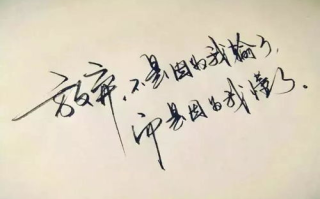 放弃，不是因为我输了，
而是因为我懂了.